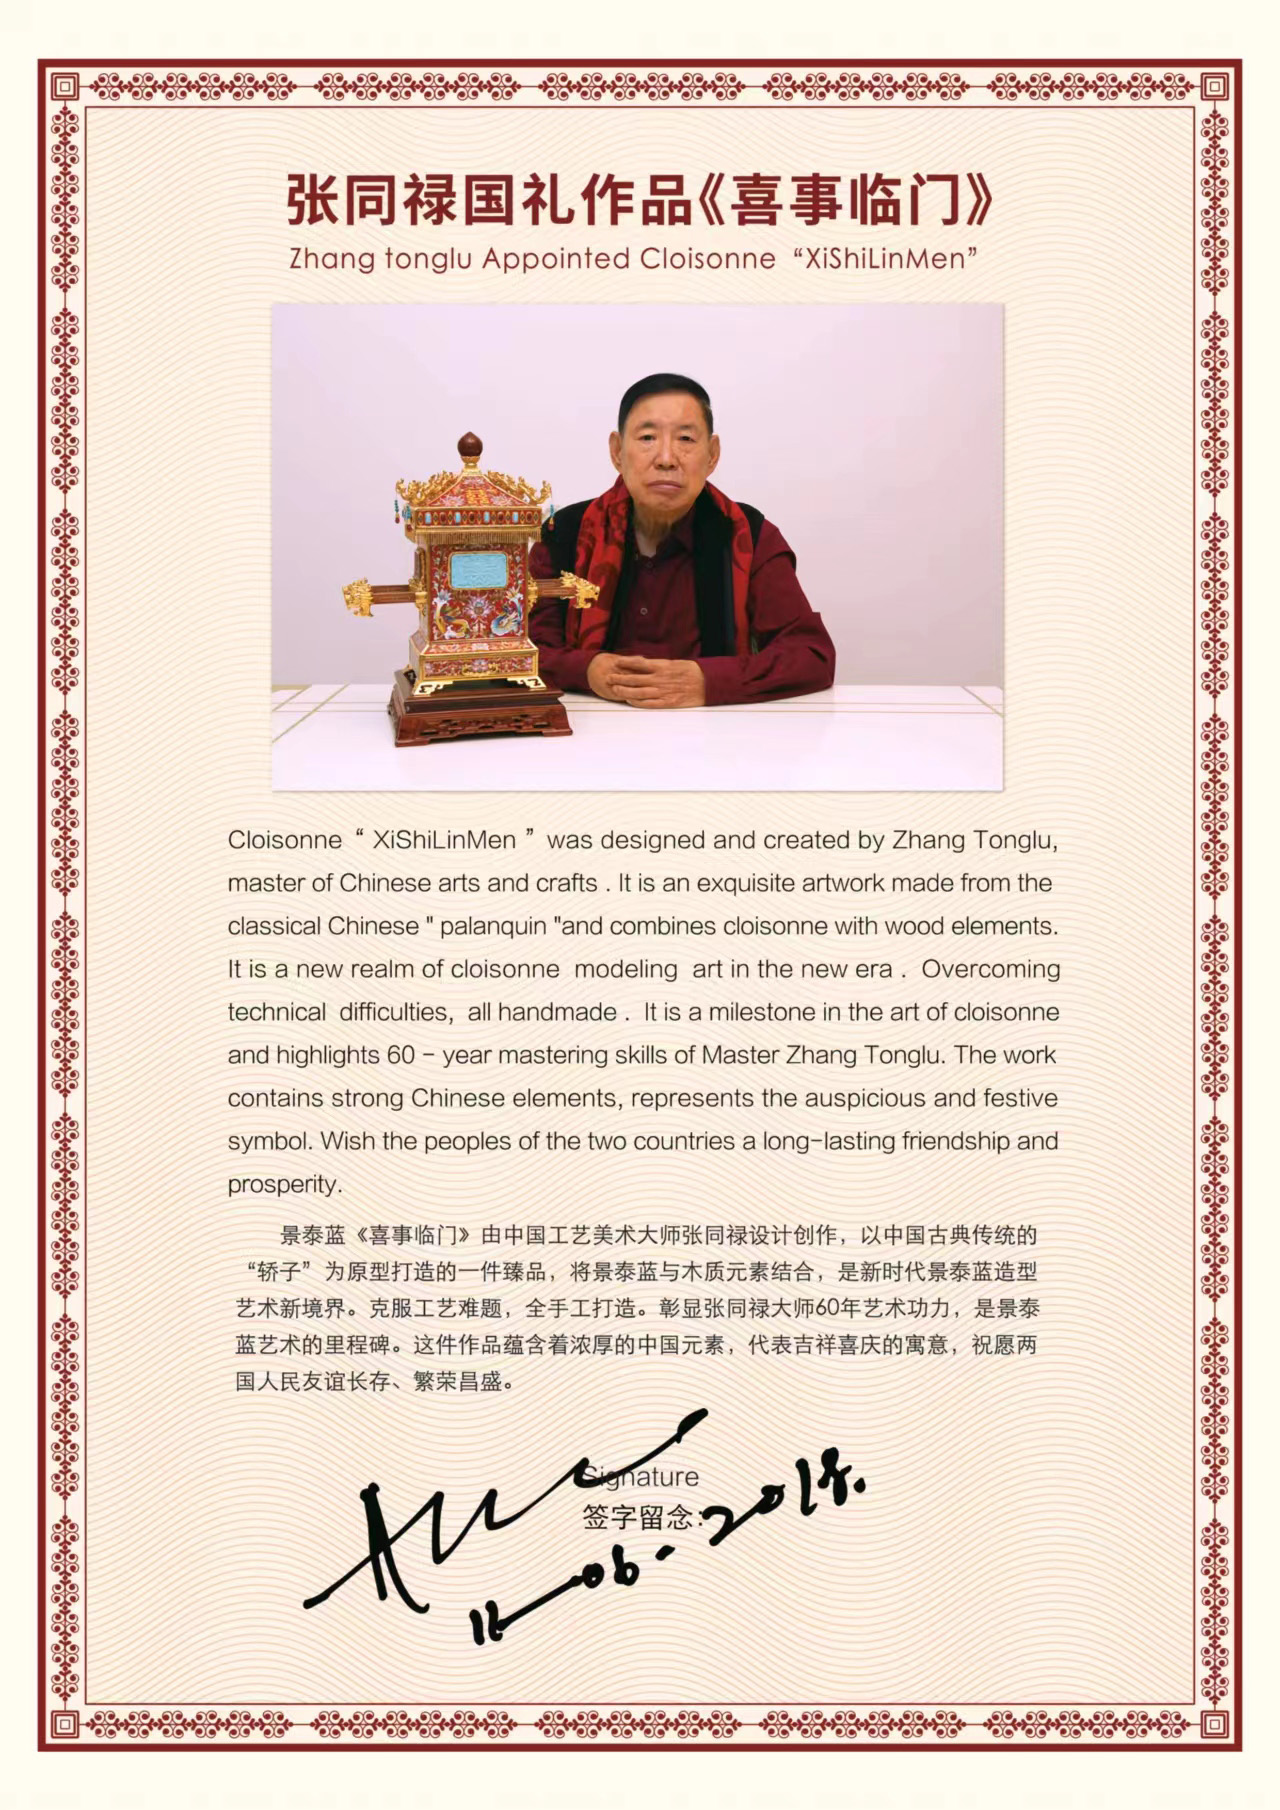 张同禄国礼作品《喜事临门》
Zhang tonglu Appointed Cloisonne “XiShiLinMen”
Cloisonne “ XiShiLinMen ” was designed and created by Zhang Tonglu,
master of Chinese arts and crafts . It is an exquisite artwork made from the
classical Chinese " palanquin "and combines cloisonne with wood elements.
It is a new realm of cloisonne modeling art in the new era . Overcoming
technical difficulties, all handmade . It is a milestone in the art of cloisonne
and highlights 60 - year mastering skills of Master Zhang Tonglu. The work
contains strong Chinese elements, represents the auspicious and festive
symbol. Wish the peoples of the two countries a long-lasting friendship and
prosperity.
景泰蓝《喜事临门》由中国工艺美术大师张同禄设计创作，以中国古典传统的
“轿子”为原型打造的一件臻品，将景泰蓝与木质元素结合，是新时代景泰蓝造型
艺术新境界。克服工艺难题，全手工打造。彰显张同禄大师60年艺术功力，是景泰
蓝艺术的里程碑。这件作品蕴含着浓厚的中国元素，代表吉祥喜庆的寓意，祝愿两
国人民友谊长存、繁荣昌盛。
Signature
签字留念：
06-2018.